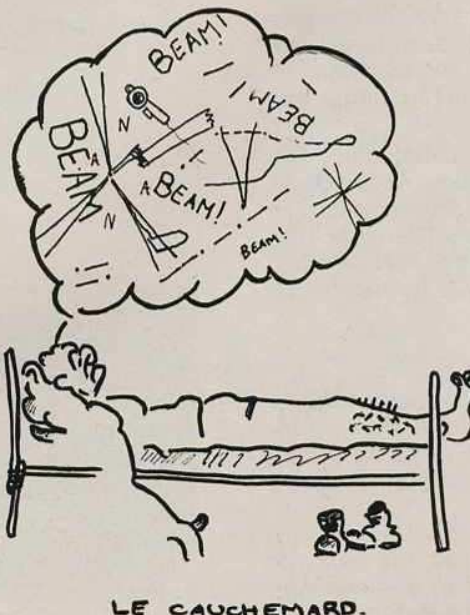 BEAM!
BEAM!
BEAM
N
A
A BEAM!
N
BEAM!
LE CAUCHEMARD.